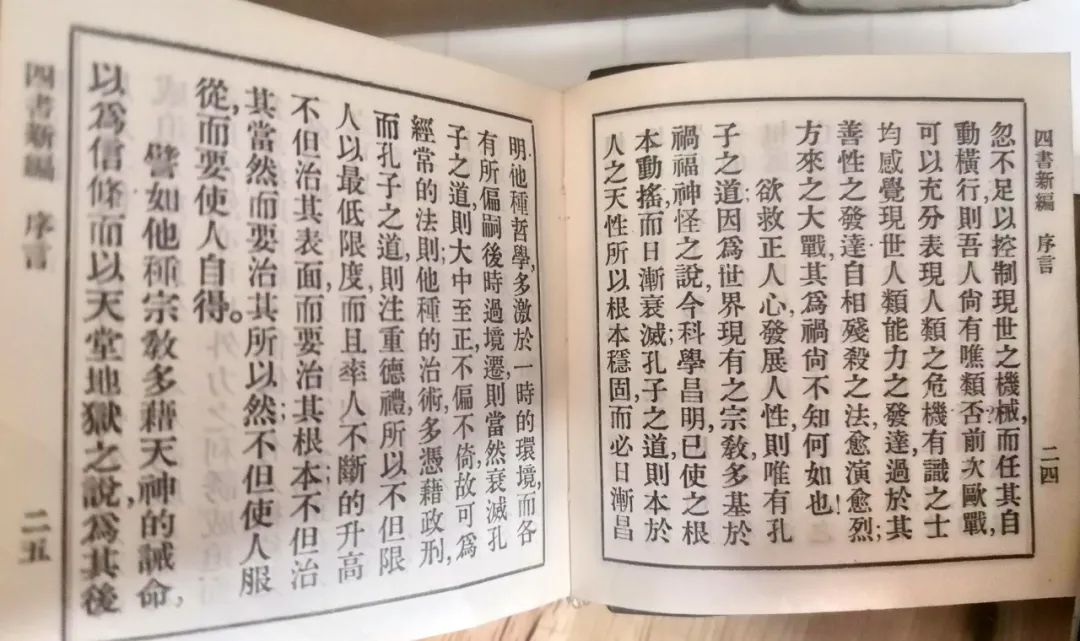 四書新編 序言 二四
忽不足以控制現世之機械,而任其自
動橫行,則吾人尙有噍類否?前次歐戰,
可以充分表現人類之危機有識之士
均感覺現世人類能力之發達,過於其
善性之發達自相殘殺之法愈演愈烈;
方來之大戰,其爲禍尙不知何如也!
欲救正人心,發展人性,則唯有孔
子之道;因爲世界現有之宗敎,多基於
禍福神怪之說,今科學昌明,已使之根
本動搖,而日漸衰滅;孔子之道,則本於
人之天性,所以根本穩固,而必日漸昌
明,他種哲學,多激於一時的環境,而各
有所偏,嗣後時過境遷,則當然衰滅;孔
子之道,則大中至正,不偏不倚,故可爲
經常的法則;他種的治術,多憑藉政刑,
而孔子之道,則注重德禮,所以不但限
人以最低限度,而且率人不斷的升高;
不但治其表面,而要治其根本;不但治
其當然,而要治其所以然;不但使人服
從,而要使人自得。
譬如他種宗敎,多藉天神的誡命,
以爲信條,而以天堂地獄之說,爲其後
四書新編 序言 二五